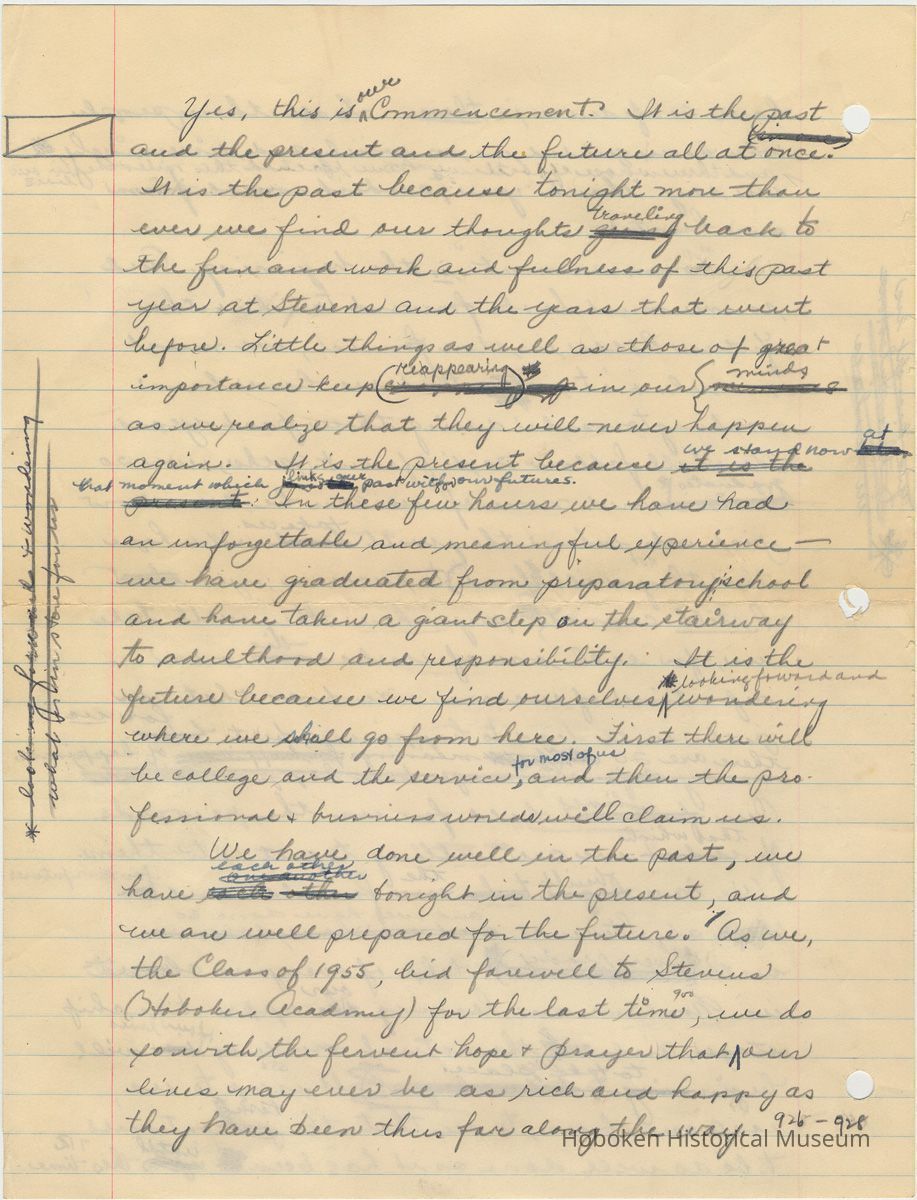 Yes, this is our Commencement. It is the past
and the present and the future all at once.
It is the past because tonight more than
ever we find our thoughts traveling back to
the fun and work and fullness of this past
year at Stevens and the years that went
before. Little things as well as those of great
importance keep (reappearing) in our minds
as we realize that they will never happen
again. It is the present because we stand now at
it is the
that moment which links our past with our futures.
present. In these few hours we have had
an unforgettable and meaningful experience —
we have graduated from preparatory school
and have taken a giant step on the stairway
to adulthood and responsibility. It is the
looking forward and
future because we find ourselves wondering
where we shall go from here. First there will
for most of us
be college and the service, and then the pro-
fessional + business worlds will claim us.
We have done well in the past, we
each other
one another
have each other tonight in the present, and
we are well prepared for the future. As we,
the Class of 1955, bid farewell to Stevens
(Hoboken Academy) for the last time, we do
so with the fervent hope + prayer that our
lives may ever be as rich and happy as
they have been thus far along the way.
926 - 928
* looking forward to + wondering
what lies in store for us
Hoboken Historical Museum